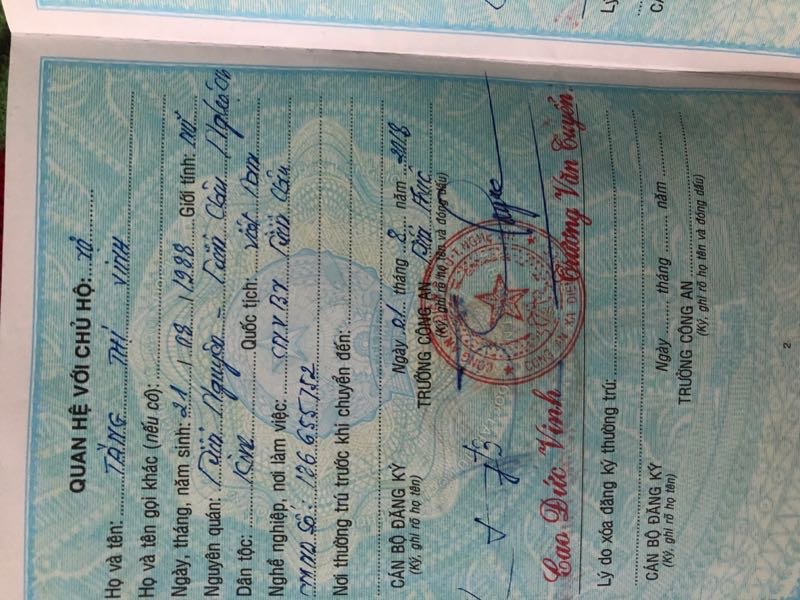 QUAN HỆ VỚI CHỦ HỘ: Vợ
Họ và tên: TĂNG THỊ VINH
Họ và tên gọi khác (nếu có):
Ngày, tháng, năm sinh: 21 / 08 / 1988 Giới tính: Nữ
Nguyên quán: Diễn Nguyên - Diễn Châu Nghệ An
Dân tộc: Kinh Quốc tịch: Việt Nam
Nghề nghiệp, nơi làm việc: CNVBV Diễn Châu
CMND Số: 186655752
Nơi thường trú trước khi chuyển đến:
CÁN BỘ ĐĂNG KÝ Ngày 01 tháng 8 năm 2018
(Ký, ghi rõ họ tên) TRƯỞNG CÔNG AN Diễn Phúc
(Ký, ghi rõ họ tên và đóng dấu)
CÔNG AN XÃ DIỄN
Cao Đức Vinh Trương Văn Tuyển
Lý do xóa đăng ký thường trú:
CÁN BỘ ĐĂNG KÝ Ngày tháng năm
(Ký, ghi rõ họ tên) TRƯỞNG CÔNG AN
(Ký, ghi rõ họ tên và đóng dấu)
2